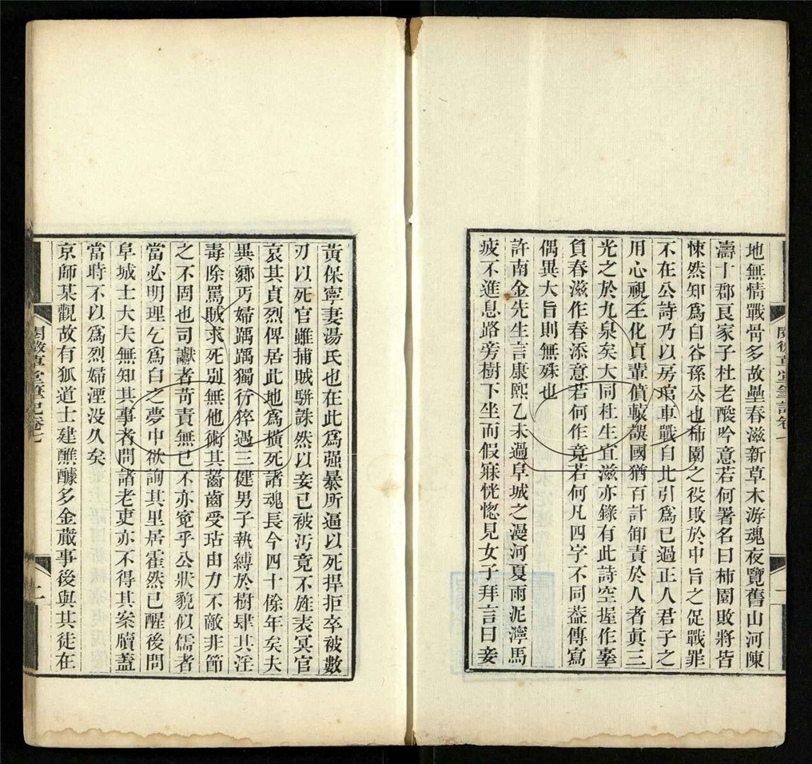 地無情戰骨多故壘春滋新草木游魂夜覽舊山河陳
濤十郡良家子杜老酸吟意若何署名曰柿園敗將皆
悚然知爲白谷孫公也柿園之役敗於中旨之促戰罪
不在公詩乃以房琯車戰自比引爲己過正人君子之
用心視王化貞輩僨轅誤國猶百計卸責於人者眞三
光之於九泉矣大同杜生宜滋亦錄有此詩空握作辜
負春滋作春添意若何作竟若何凡四字不同蓋傳寫
偶異大旨則無殊也
許南金先生言康熙乙未過阜城之漫河夏雨泥濘馬
疲不進息路旁樹下坐而假寐恍惚見女子拜言曰妾
黃保寧妻湯氏也在此爲强暴所逼以死捍拒卒被數
刃以死官雖捕賊駢誅然以妾已被汚竟不旌表冥官
哀其貞烈俾居此地爲橫死諸魂長今四十餘年矣夫
異鄉丐婦踽踽獨行猝遇三健男子執縛於樹肆其淫
毒除罵賊求死別無他術其齧齒受玷由力不敵非節
之不固也司讞者苛責無已不亦冤乎公狀貌似儒者
當必明理乞爲白之夢中欲詢其里居霍然已醒後問
阜城士大夫無知其事者問諸老吏亦不得其案牘蓋
當時不以爲烈婦湮没久矣
京師某觀故有狐道士建醮醵多金蕆事後與其徒在
閱微草堂筆記卷七